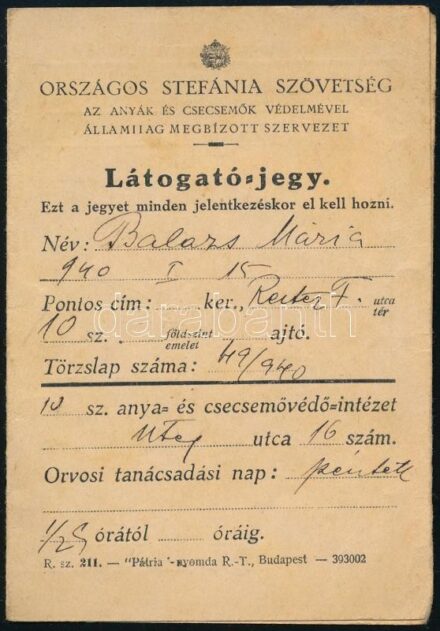 ORSZÁGOS STEFÁNIA SZÖVETSÉG
AZ ANYÁK ÉS CSECSEMŐK VÉDELMÉVEL
ÁLLAMILAG MEGBÍZOTT SZERVEZET
Látogató-jegy.
Ezt a jegyet minden jelentkezéskor el kell hozni.
Név: Balazs Mária
940 I 15
Pontos cím: ker., Reiter F. utca tér
10 sz. földszint emelet ajtó.
Törzslap száma: 49/940
10 sz. anya- és csecsemővédő-intézet
Uteg utca 16 szám.
Orvosi tanácsadási nap: péntek
1/2 órától óráig.
R. sz. 211. — "Pátria"-nyomda R.-T., Budapest — 393002
darabanth